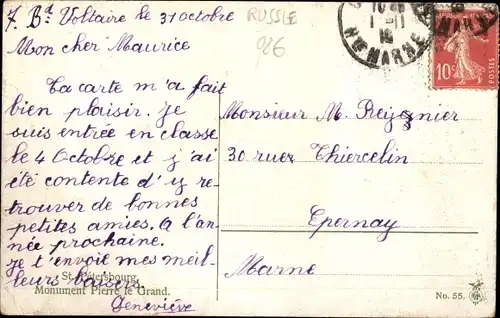 7. Bd Voltaire le 31 octobre
RUSSIE
96
Mon cher Maurice
Ta carte m'a fait
bien plaisir. Je
suis entrée en classe
le 4 Octobre et j'ai
été contente d'y re-
trouver de bonnes
petites amies. A l'an-
née prochaine.
Je t'envoie mes meil-
leurs baisers.
Geneviève
St. Pétersbourg.
Monument Pierre le Grand.
1-11
Hte MARNE
10c
POSTES
Monsieur M.
30 rue Thiercelin
Epernay
Marne
No. 55.